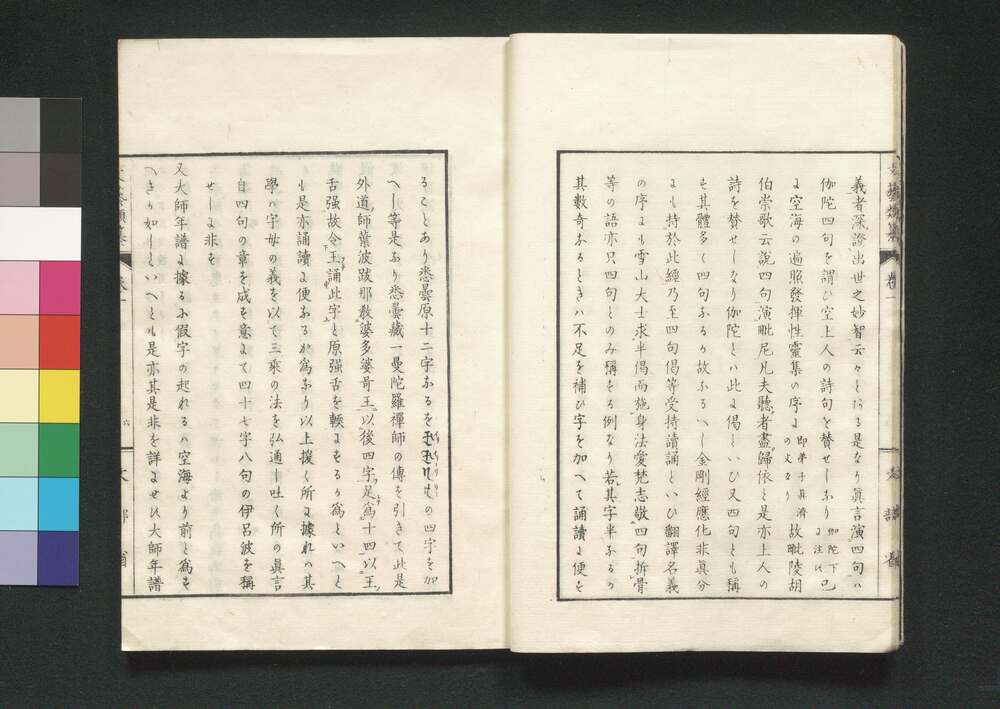 義者深證出世之妙智云々とある是なり眞言演四句ハ
伽陀四句を謂ひ空上人の詩句を賛せしなり 伽陀下巳に注す
に空海の遍照發揮性靈集の序に 即弟子眞濟の文なり 故毗陵胡
伯崇歌云説四句演毗尼凡夫聽者盡歸依と是亦上人の
詩を賛せしなり伽陀とハ此に偈といひ又四句とも稱
も其體多く四句なるか故なるへし金剛經應化非眞分
にも持於此經乃至四句偈等受持讀誦といひ翻譯名義
の序にも雪山大士求半偈而施身法愛梵志敬四句折骨
等の語亦只四句とのみ稱する例なり若其字半なるか
其數奇なるときハ不足を補ひ字を加へて誦讀に便を
ることあり悉曇原十二字なるを の四字を加
へし等是なり悉曇藏一曼陀羅禪師の傳を引きて此是
外道師葉波跋那敎婆多婆哥王以後四字足爲十四以王
舌强故令王誦此字と原强舌を輭にするか爲といへと
も是亦誦讀に便なるか爲なり以上援く所に據れハ其
學ハ字母の義を以て三乘の法を弘通し吐く所の眞言
自四句の章を成を意にて四十七字八句の伊呂波を稱
せしに非を
又大師年譜に據るに假字の起れるハ空海より前と爲も
へきか如しといへとも是亦其是非を詳にせす大師年譜
卷一